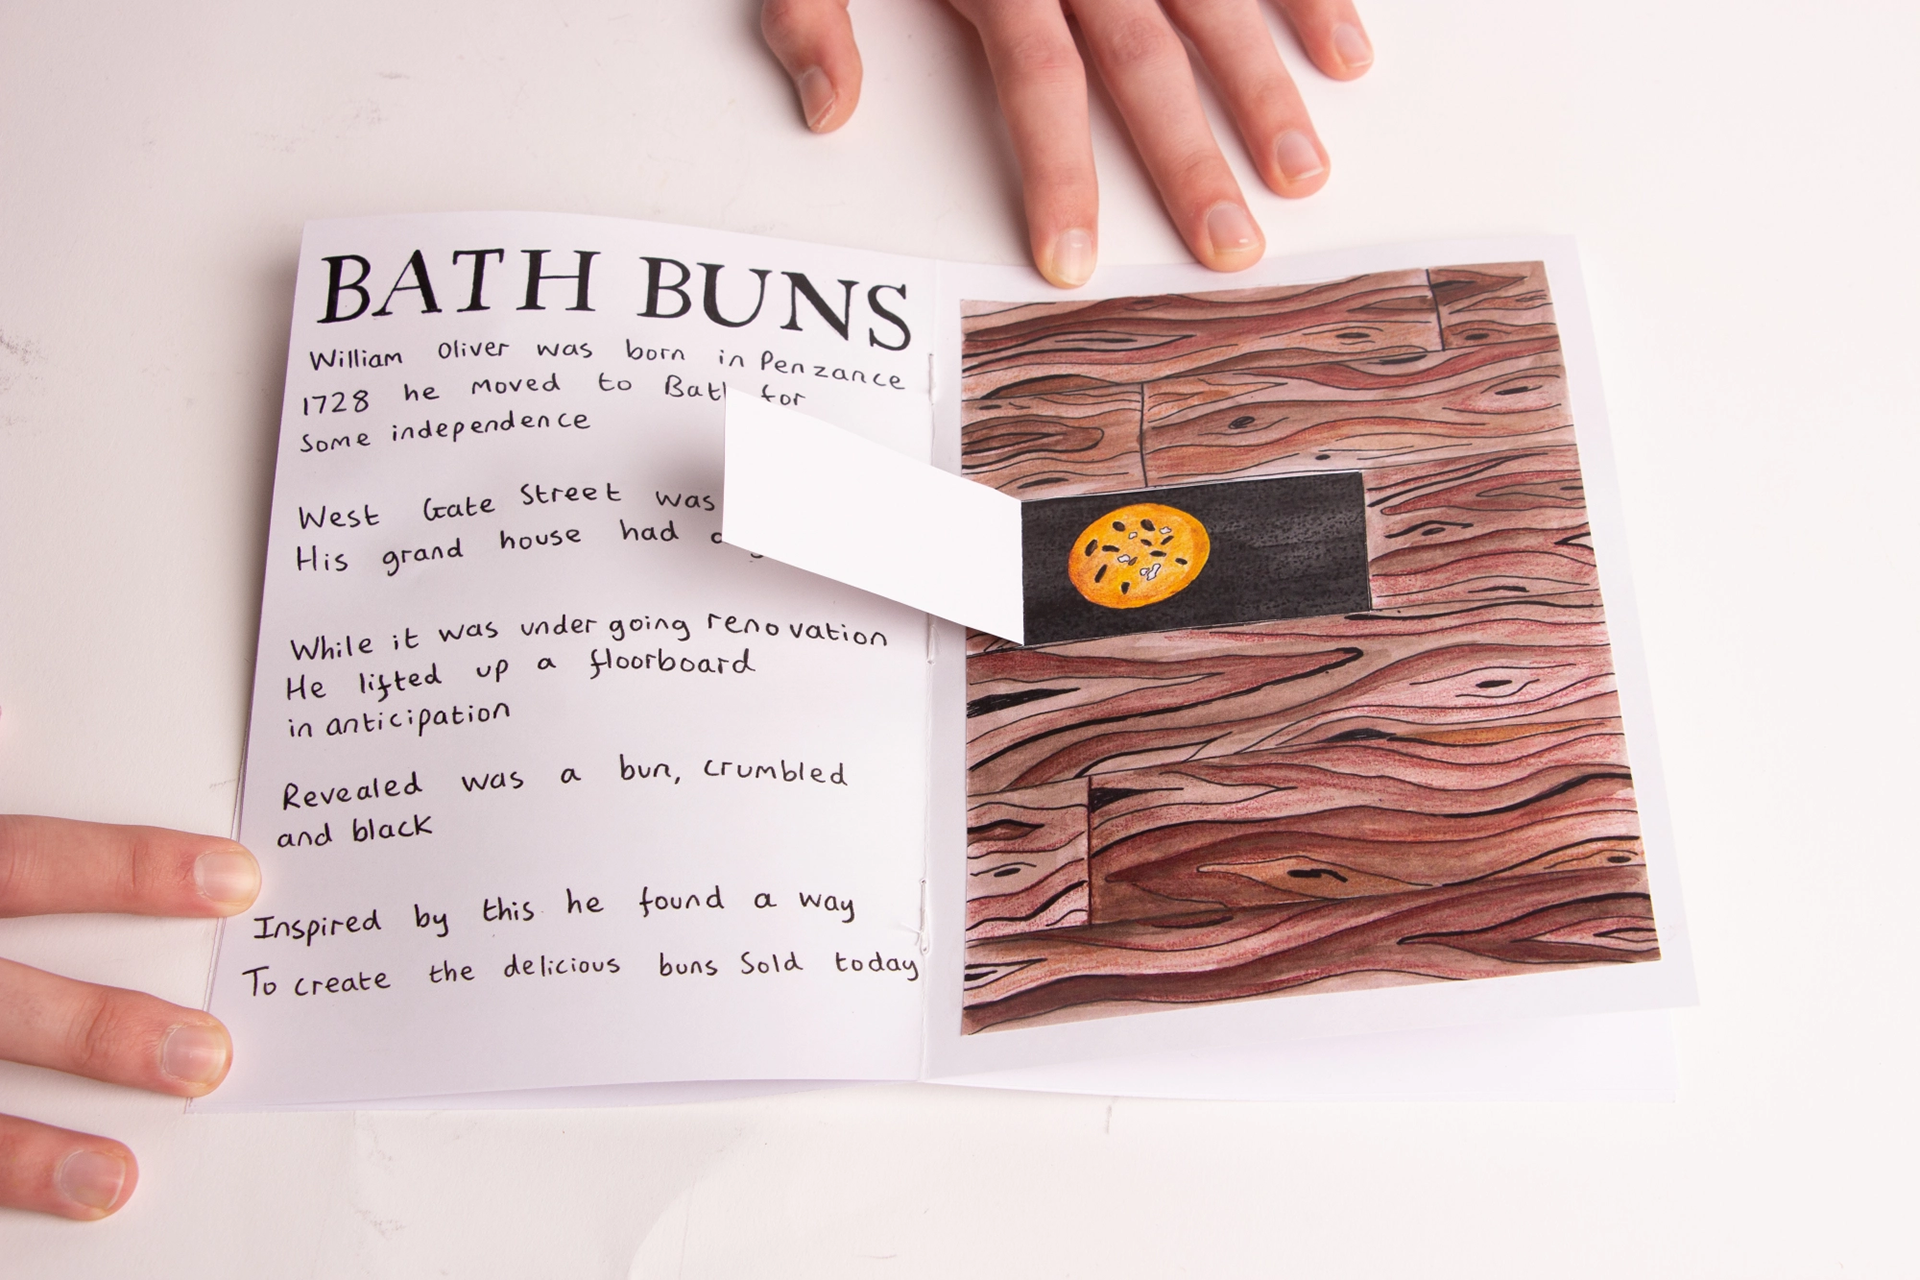 BATH BUNS
William Oliver was born in Penzance
1728 he moved to Bath for
Some independence
West Gate Street was
His grand house had
While it was under going renovation
He lifted up a floorboard
in anticipation
Revealed was a bun, crumbled
and black
Inspired by this he found a way
To create the delicious buns Sold today